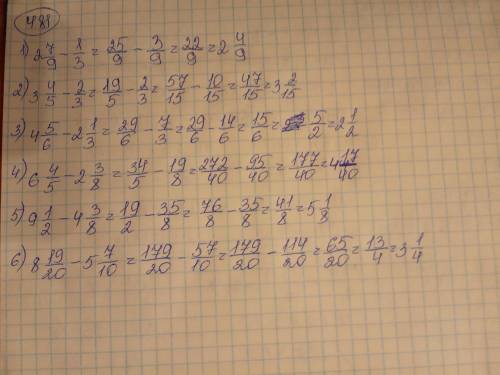 481
1) 2 7/9 - 1/3 = 25/9 - 3/9 = 22/9 = 2 4/9
2) 3 4/5 - 2/3 = 19/5 - 2/3 = 57/15 - 10/15 = 47/15 = 3 2/15
3) 4 5/6 - 2 1/3 = 29/6 - 7/3 = 29/6 - 14/6 = 15/6 = 5/2 = 2 1/2
4) 6 4/5 - 2 3/8 = 34/5 - 19/8 = 272/40 - 95/40 = 177/40 = 4 17/40
5) 9 1/2 - 4 3/8 = 19/2 - 35/8 = 76/8 - 35/8 = 41/8 = 5 1/8
6) 8 19/20 - 5 7/10 = 179/20 - 57/10 = 179/20 - 114/20 = 65/20 = 13/4 = 3 1/4